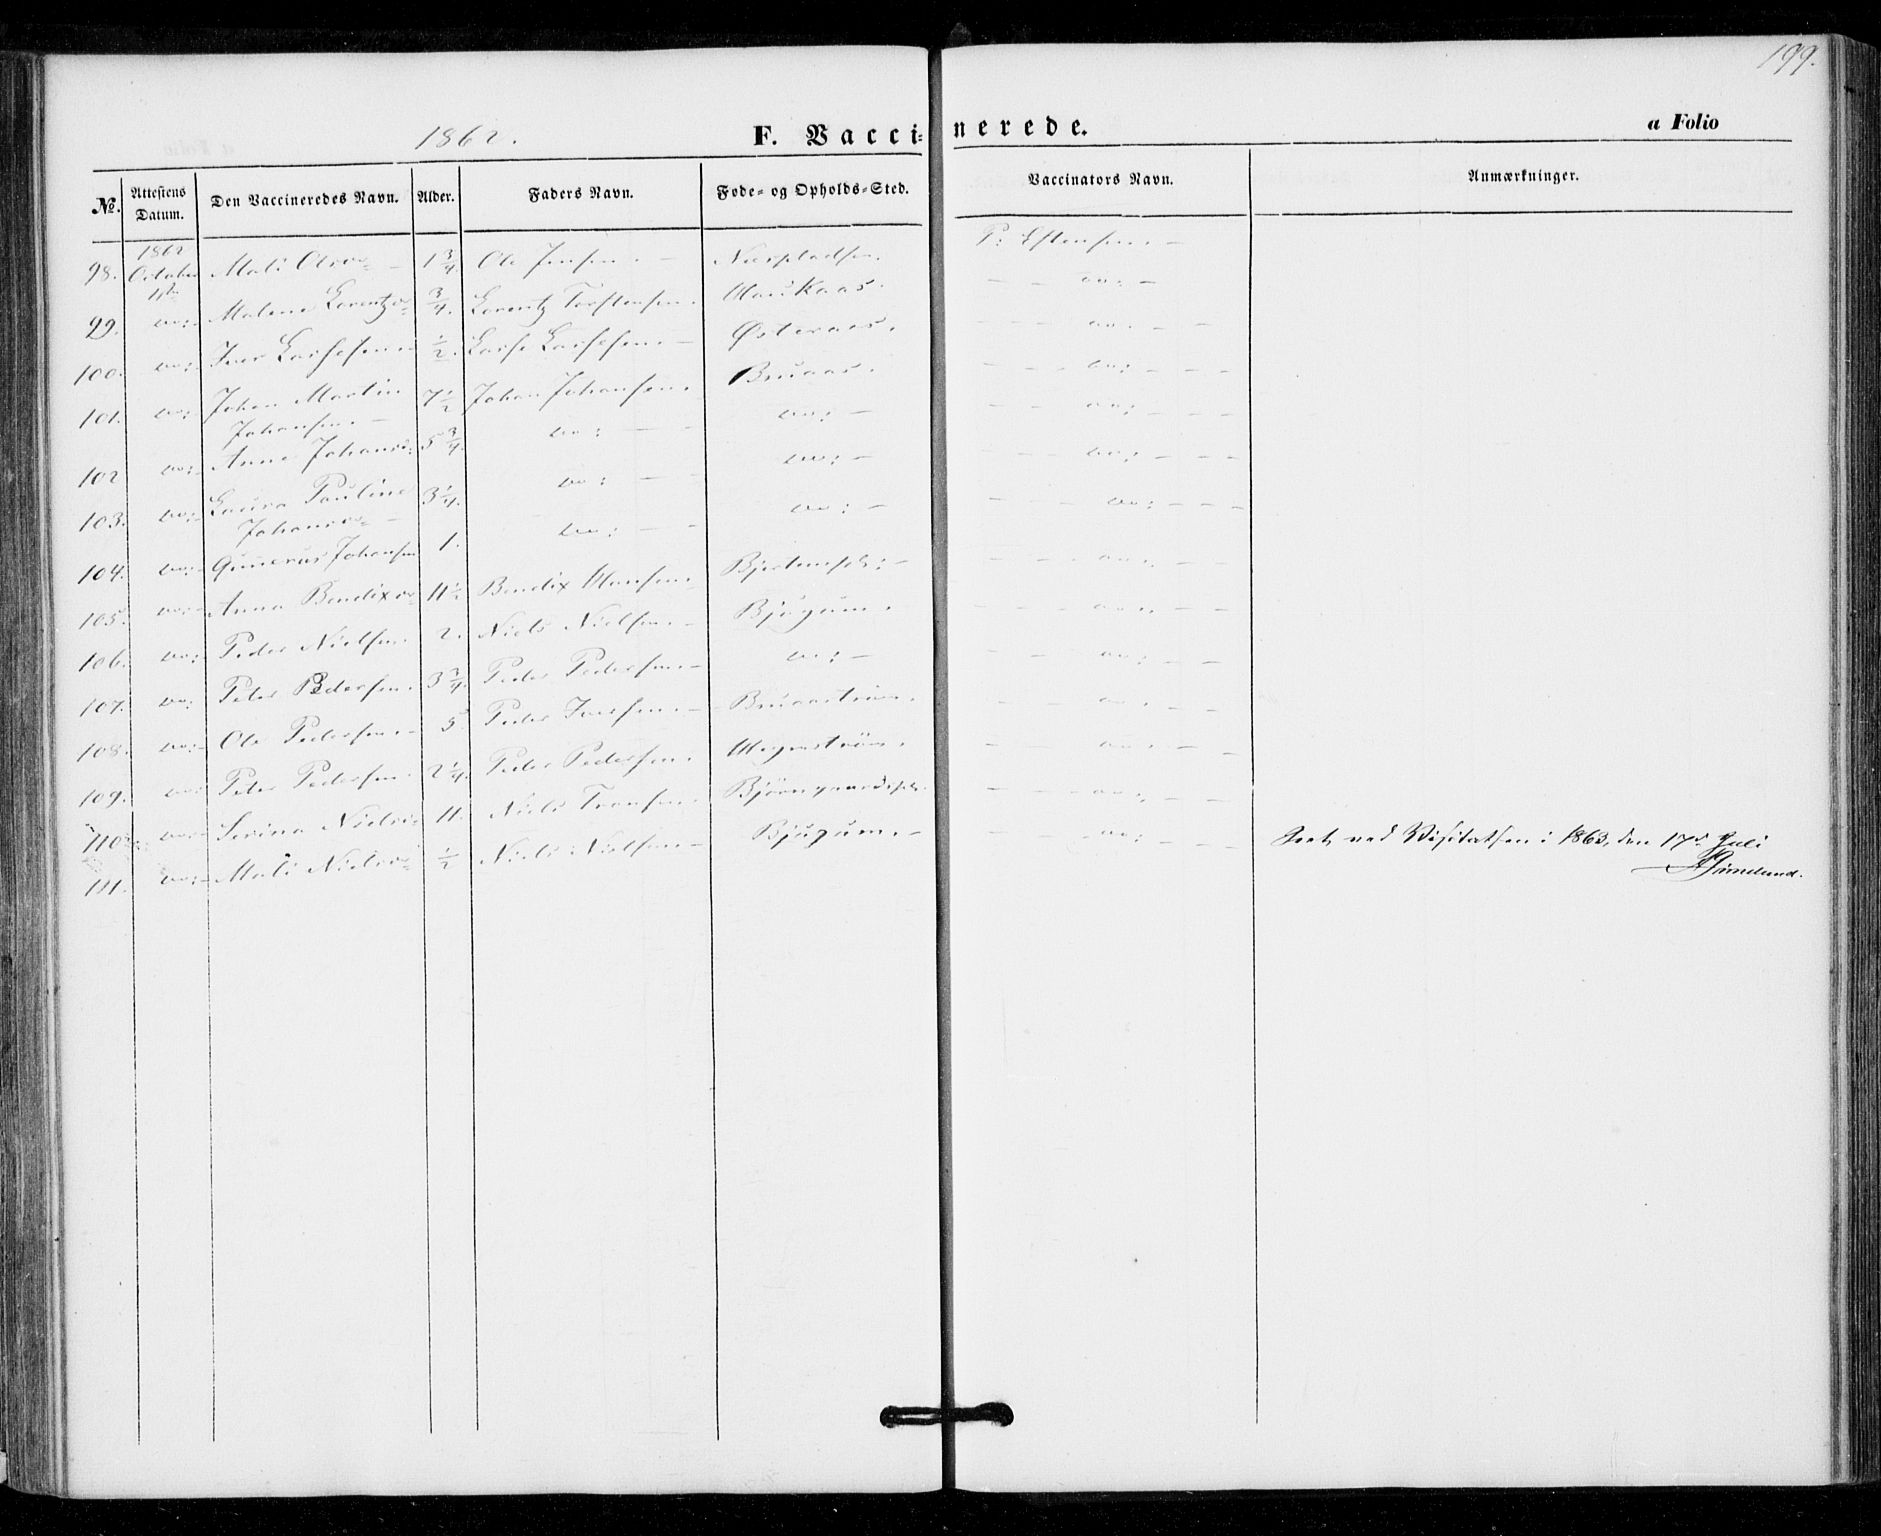 199.
1862.
F. Vaccinerede.
a Folio
No. Attestens Datum. Den Vaccineredes Navn. Alder. Faders Navn. Føde- og Opholds-Sted. Vaccinators Navn. Anmærkninger.
1862
98. October Mali Olsd. 1 3/4 Ole Jensen. P. Estensen.
99. do: Malene Lorentzd. 3/4. Lorentz Torstensen. do:
100. do: Iver Larsesen 1/2. Larse Larsesen Østeraas. do:
101. do: Johan Martin 7 1/2 Johan Johansen. Bruaas. do:
Johansen.
102 do: Anne Johansd: 5 3/4. do: do: do:
103. do: Laura Pauline 3 1/4. do: do: do:
Johansd.
104. do: Gunerus Johansen 1. do: do: do:
105. do: Anna Bendixd. 11 1/2 Bendix Hansen. do:
106. do: Peder Nielsen. 2. Niels Nielsen. Bjugum. do:
107. do: Peter Pedersen. 3 3/4. Peder Pedersen do: do:
108. do: Ole Pedersen. 5 Peder Iversen do:
109. do: Peter Pedersen. 2 1/4. Peder Pedersen. do:
110 do: Serina Nielsd: 11. Niels do:
111. do: Mali Nielsd: 1/2 Niels Nielsen Bjugum. do: Seet ved Visitatsen i 1863, den 17d. Juli